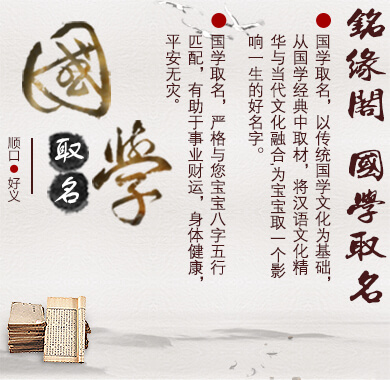 銘缘阁 國學取名
国学取名，以传统国学文化为基础，
从国学经典中取材，将汉语文化精
华与当代文化融合为宝宝取一个影
响一生的好名字。
国学取名，严格与您宝宝八字五行
匹配，有助于事业财运，身体健康，
平安无灾。
國學
取名
顺口●好义